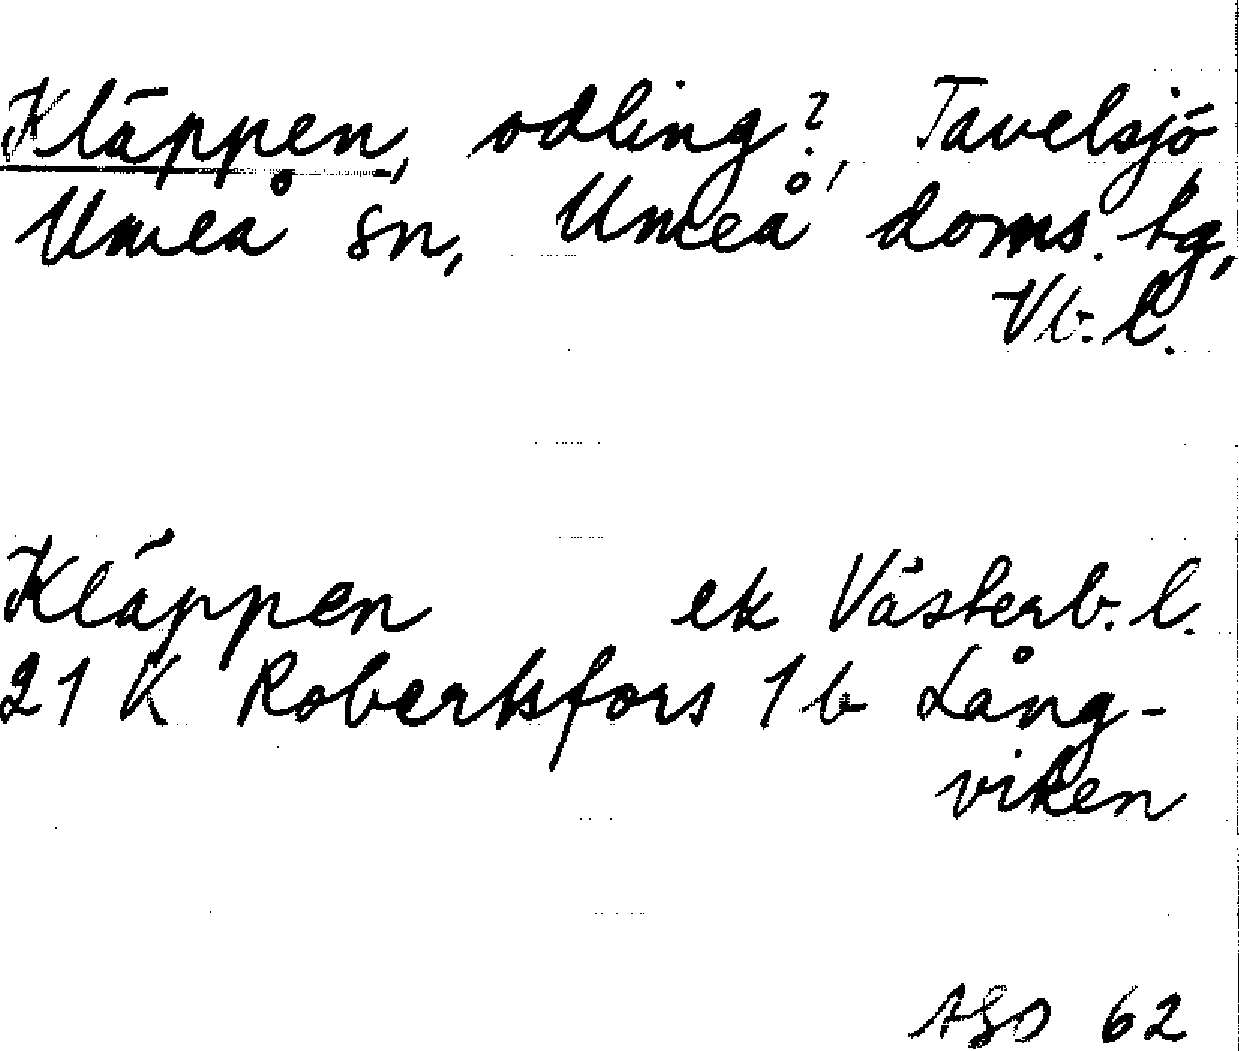 Kläppen, odling?, Tavelsjö
Umeå sn, Umeå doms. tg,
Vb. l.
Kläppen ek Västerb. l.
21 K Robertsfors 1 b Lång-
viken
ASD 62